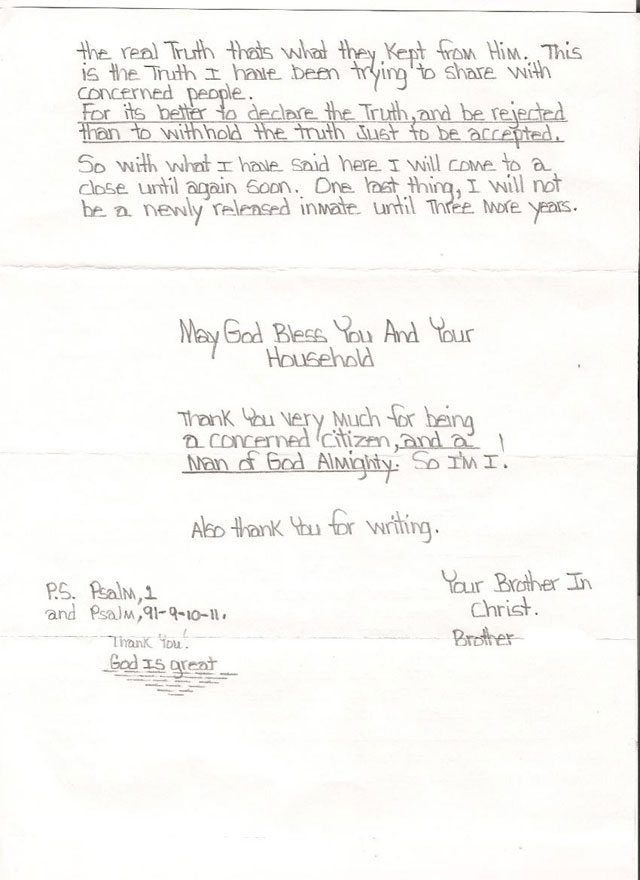 the real Truth thats what they Kept from Him. This
is the Truth I have been trying to share with
concerned people.
For its better to declare the Truth, and be rejected
than to withhold the truth Just to be accepted.
So with what I have said here I will come to a
close until again soon. One last thing, I will not
be a newly released inmate until Three More years.
May God Bless You And Your
Household
Thank You Very Much for being
a concerned citizen, and a
Man of God Almighty. So I'M I!
Also thank You for writing.
P.S. Psalm, 1
and Psalm, 91-9-10-11.
Thank You!
God Is great
Your Brother In
Christ.
Brother